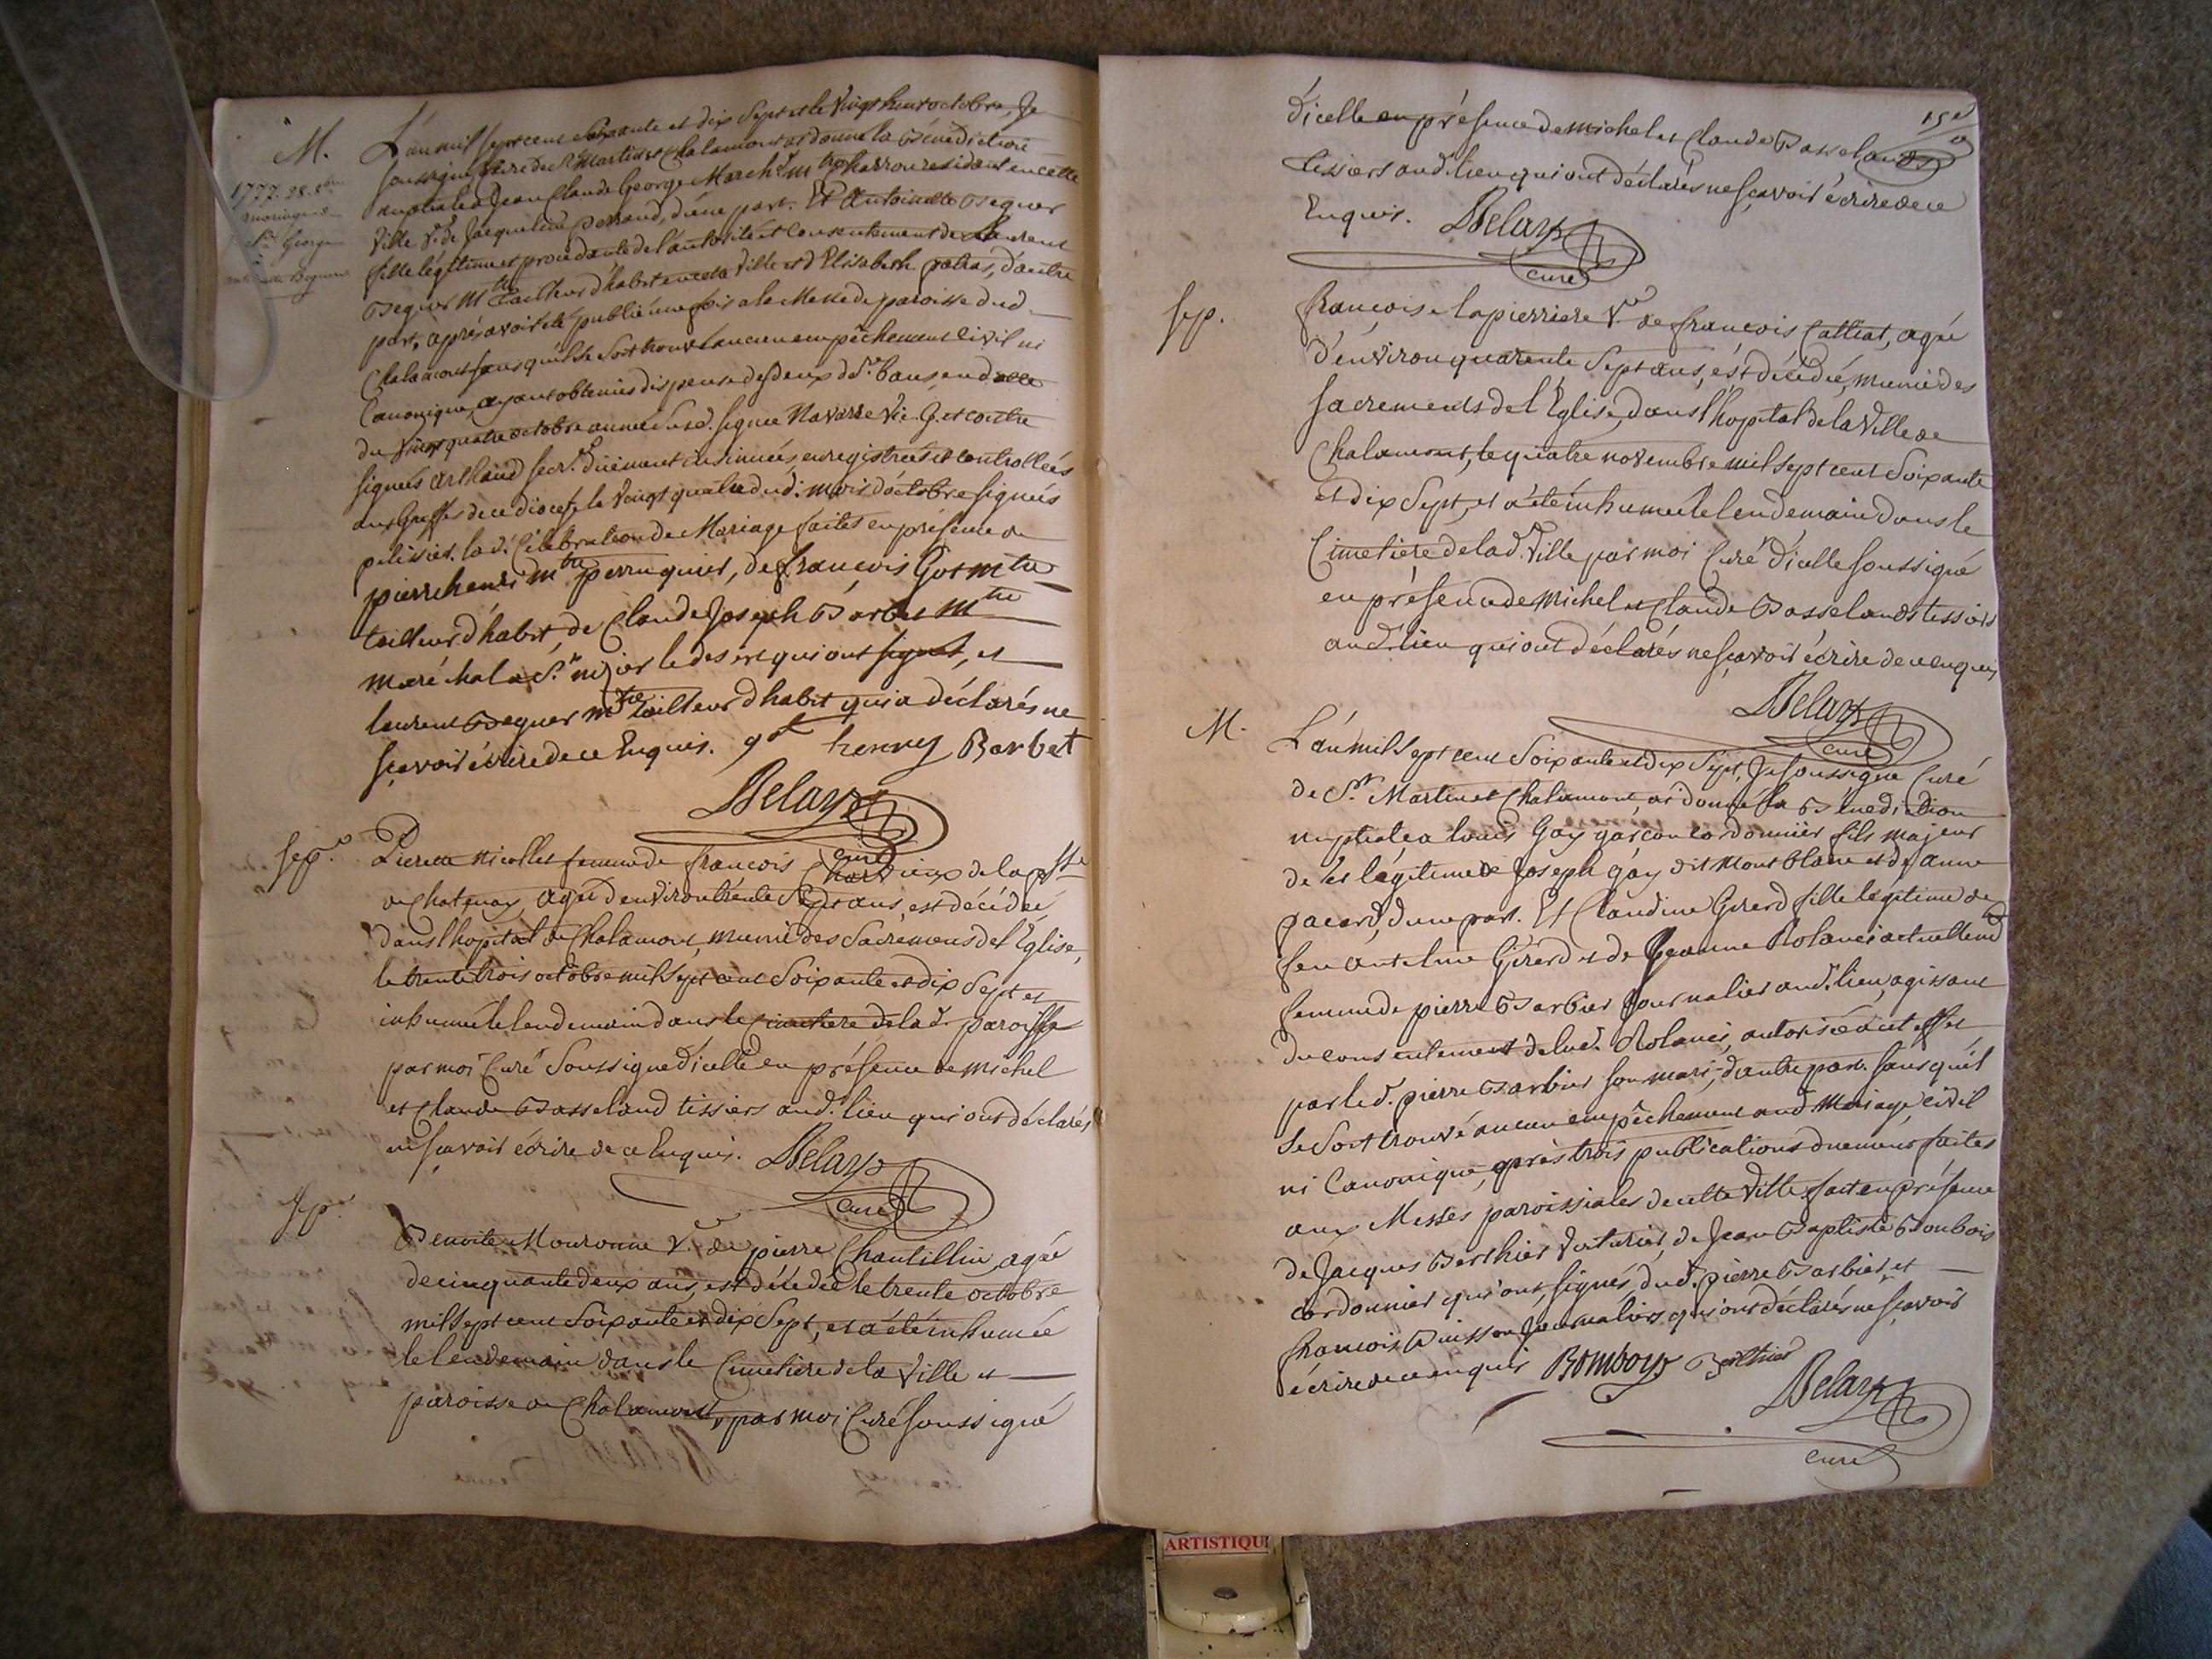 M.
1777. 28. 8bre
mariage de
George
L'an mil sept cent soixante et dix sept et le vingt huit octobre, Je
soussigné Curé de St Martin et Chalamont ai donné la Bénédiction
nuptiale a Jean Claude George March.d m.tre charron residant en cette
ville V.f de Jacqueline perraud, d'une part. Et Antoinette Beguer
fille légitime et procédante de l'autorité et consentement de Laurent
Beguer M.tre tailleur d'habit en cette ville et d'Elisabeth d'autre
part, après avoir été publié une fois a la Messe de paroisse dud
Chalamont sans qu'il se soit trouvé aucun empêchement civil ni
Canonique, ayant obtenus dispense des deux d.r bans, en datte
du vingt quatre octobre année susd. signée Navarre Vic. G. et contre
signés Arthaud secr. düement insinuées, enregistrées et controllées
aux Greffes de ce diocese le vingt quatre dud. mois d'octobre signés
pelissier. la d. Célébration de Mariage faites en présence de
pierre henri m.tre perruquier, de françois Got m.tre
tailleur d'habit, de Claude Joseph Barbet M.tre
maréchal a St nizier le desert qui ont signés, et
laurent Beguer m.tre tailleur d'habit qui a déclarés ne
sçavoir écrire de ce Enquis. got henry Barbet
Delary
curé
sep.e
Pierrette nicollet femme de françois Charvieux de la p.sse
de Chatenay, agée d'environ trente sept ans, est décédée
dans l'hopital de Chalamont, munie des Sacremens de l'Église,
le trente trois octobre mil sept cent soixante et dix sept et
inhumée le lendemain dans le cimetiere de la d. paroisse
par moi Curé soussigné d'icelle en présence de michel
et Claude Basseland tissiers aud. lieu qui ont déclarés
ne sçavoir écrire de ce Enquis. Delary
curé
sep.e
Benoite Mouronne V.e de pierre Chantillin, agée
de cinquante deux ans, est décédée le trente octobre
mil sept cent soixante et dix sept, et a été inhumée
le lendemain dans le Cimetiere de la ville et
paroisse de Chalamont, par moi Curé soussigné
15e
d'icelle en présence de michel et Claude Basselands
tissiers aud. lieu qui ont déclarés ne sçavoir écrire de ce
Enquis. Delary
curé
sep.
françoise lapierriere V.e de françois Catliat, agée
d'environ quarente sept ans, est décédée, munie des
sacrements de l'Église, dans l'hopital de la ville de
Chalamont, le quatre novembre mil sept cent soixante
et dix sept, et a été inhumée le lendemain dans le
Cimetiere de la d. ville par moi Curé d'icelle soussigné
en présence de Michel et Claude Basselands tissiers
aud. lieu qui ont déclarés ne sçavoir écrire de ce enquis
Delary
curé
M.
L'an mil sept cent soixante et dix sept, Je soussigné Curé
de St Martin et Chalamont, ai donné la Bénédiction
nuptiale a louis Gay garçon cordonnier fils majeur
de et légitime de Joseph gay dit Montblanc et de anne
pacard, d'une part. Et Claudine Girerd fille légitime de
feu Antelme Girerd et de Jeanne Rolanci actuellement
femme de pierre Barbier Journalier aud. lieu, agissant
du consentement de lad. Rolanci, autorisée a cet effet
par led. pierre Barbier son mari, d'autre part. sans qu'il
se soit trouvé aucun empêchement aud. Mariage civil
ni Canonique, après trois publications duement faites
aux Messes paroissiales de cette ville fait en présence
de Jacques Berthier voiturier, de Jean Baptiste Bonbois
cordonnier qui ont signés, dud. pierre Barbier, et
françois Buisson Journaliers qui ont déclarés ne sçavoir
écrire de ce enquis Bomboy Berthier
Delary
curé
ARTISTIQU